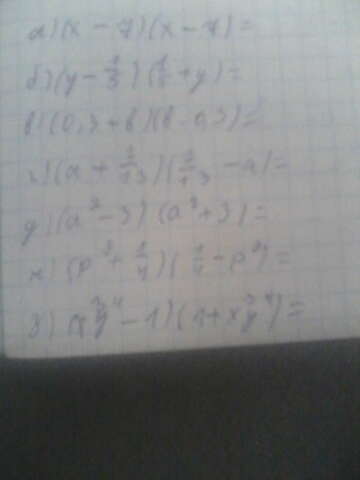 а) (x - 7)(x - 7) =
б) (y - 1/3)(1/3 + y) =
в) (0,3 + b)(b - 0,3) =
г) (a + 2/13)(2/13 - a) =
д) (a² - 3)(a² + 3) =
ж) (p³ + 1/4)(1/4 - p³) =
з) (x³y⁴ - 1)(1 + x³y⁴) =